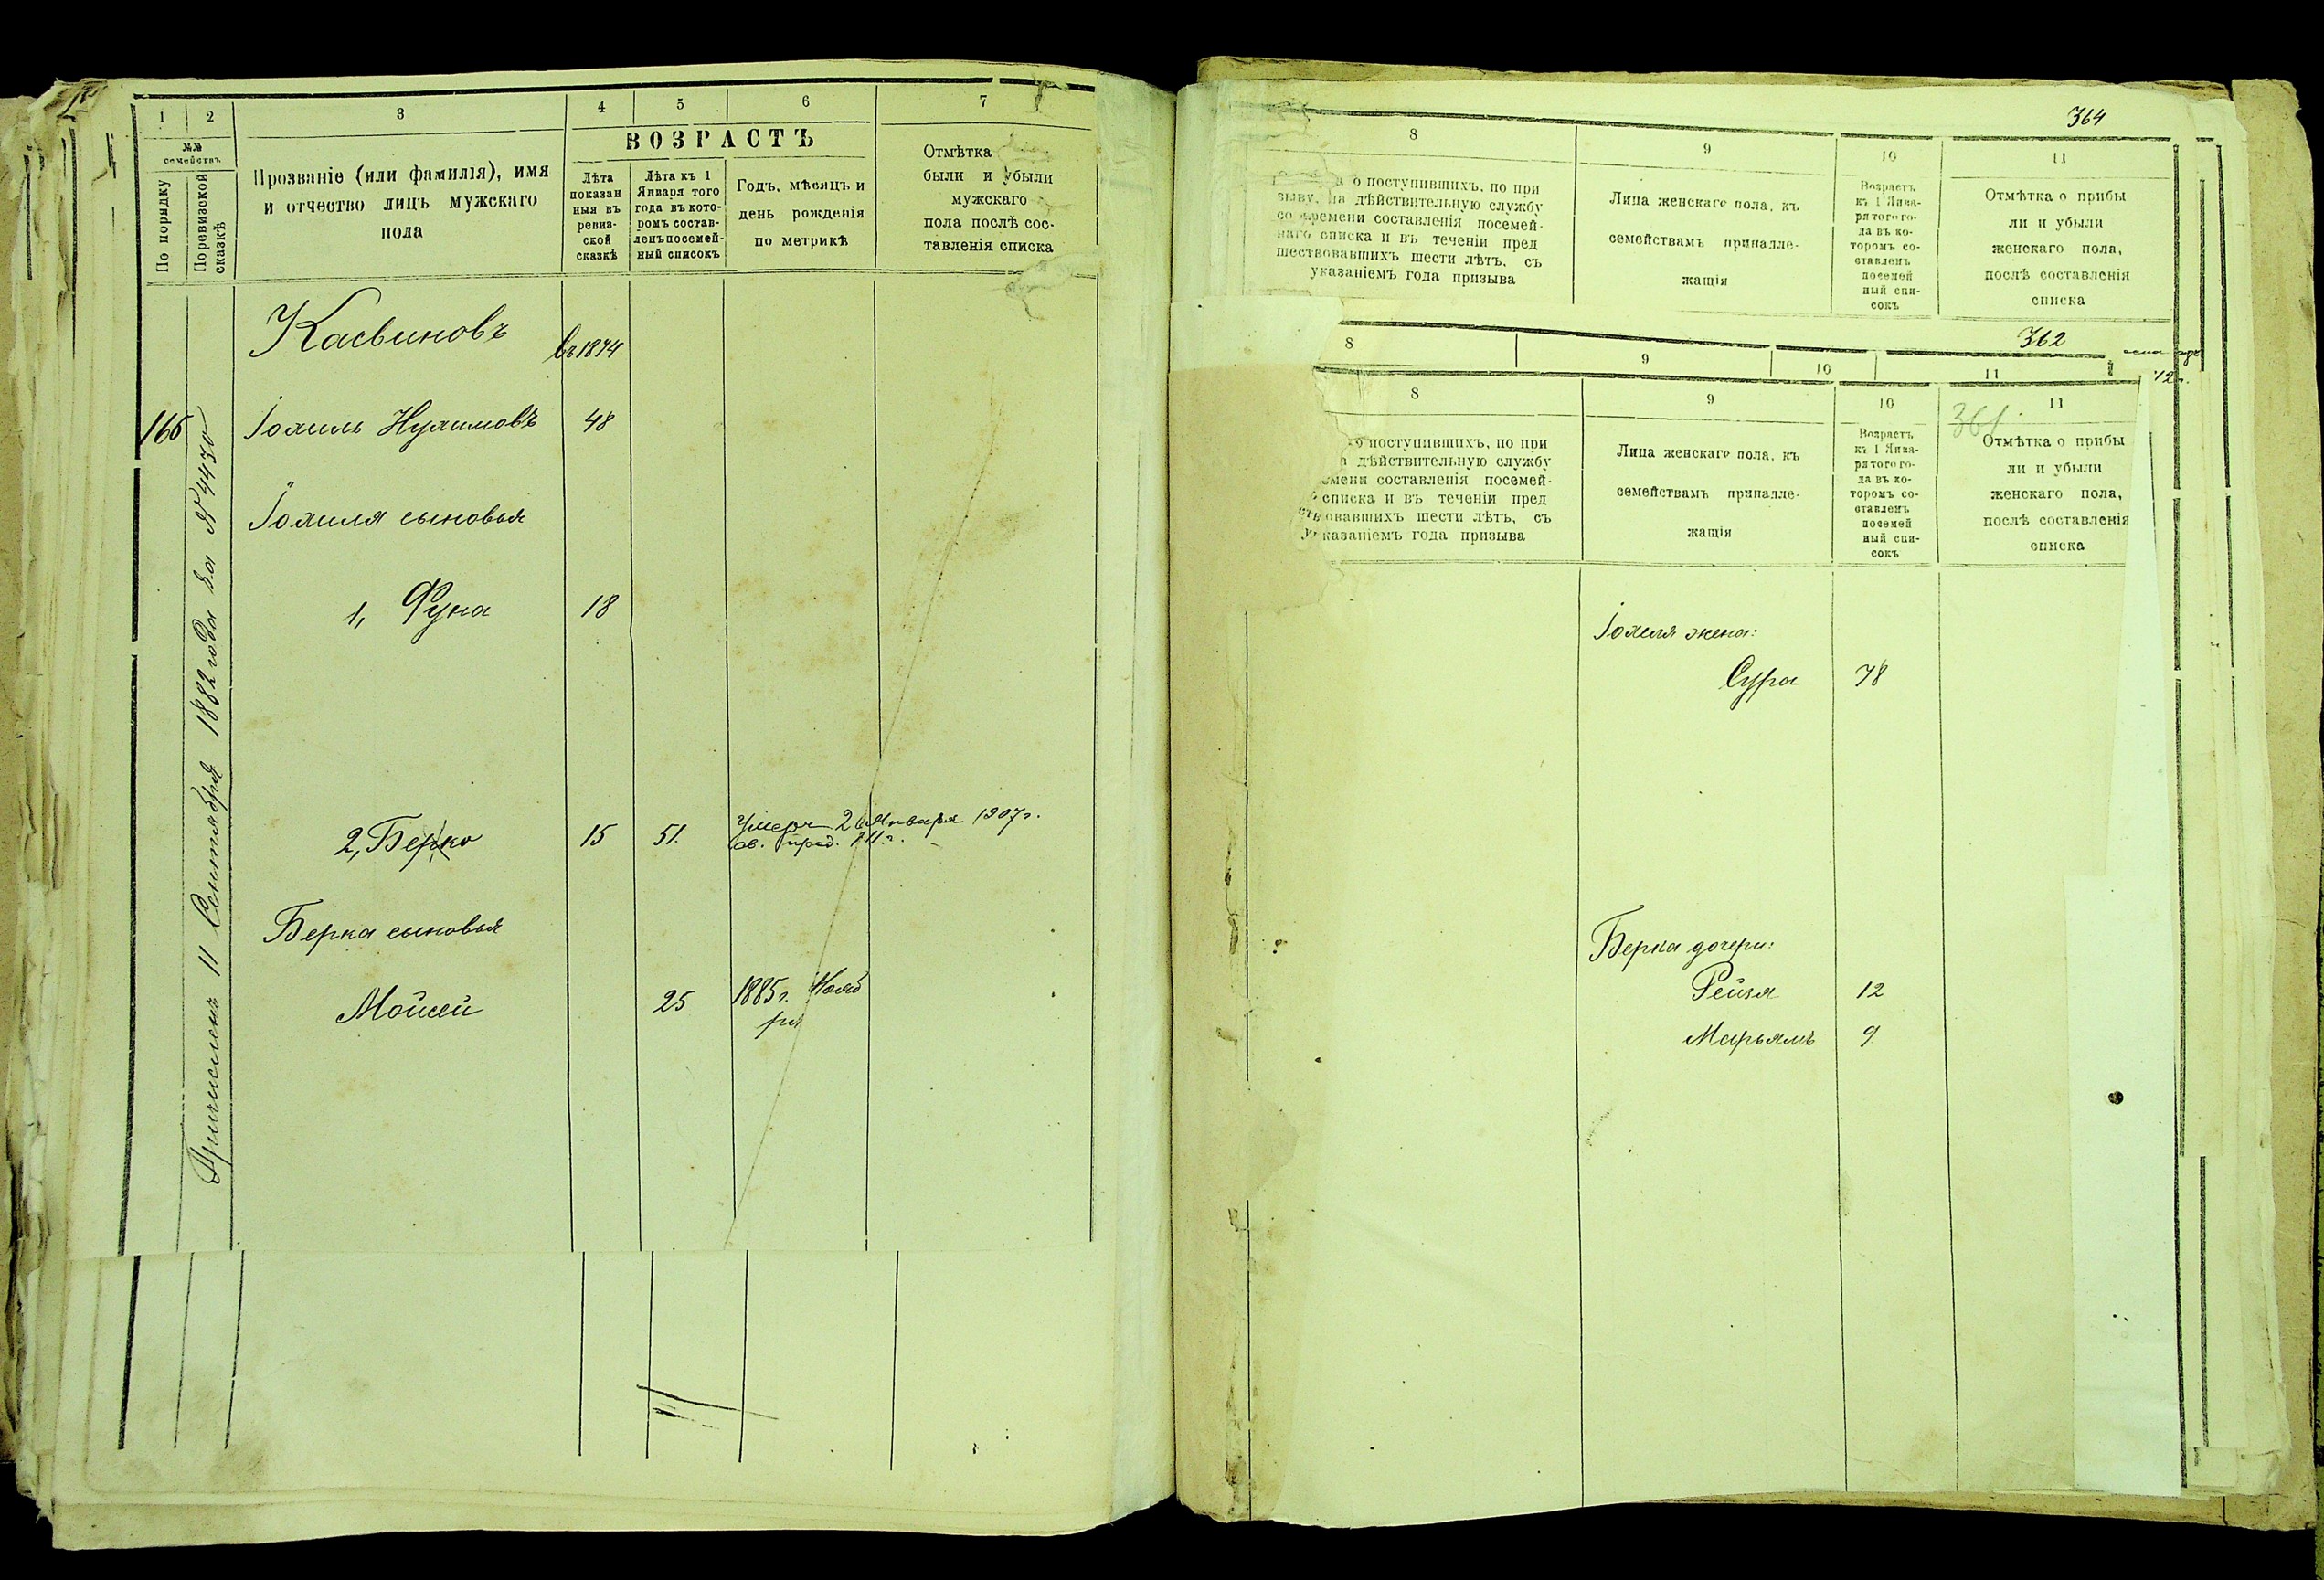 1 2 3 4 5 6 7
№№ семействъ
По порядку
По ревизской сказкѣ
Прозваніе (или фамилія), имя
и отчество лицъ мужскаго
пола
ВОЗРАСТЪ
Лѣта
показан
ныя въ
ревиз-
ской
сказкѣ
Лѣта къ 1
Января того
года въ кото-
ромъ состав-
ленъ посемей-
ный списокъ
Годъ, мѣсяцъ и
день рожденія
по метрикѣ
Отмѣтка
были и убыли
мужскаго
пола послѣ сос-
тавленія списка
Касвиновъ
въ 1874
165 Іохиль Нухимовъ 48
Іохиля сыновья
1, Фуна 18
2, Берко 15 51.
Умеръ 2 Января 1907 г.
Берка сыновья
Мойсей 25 1885 г. Нояб
ря
Причисленъ 11 Сентября 1882 года за № 4430
364
8 9 10 11
о поступившихъ, по при
зыву, на дѣйствительную службу
со времени составленія посемей-
наго списка и въ теченіи пред
шествовавшихъ шести лѣтъ, съ
указаніемъ года призыва
Лица женскаго пола, къ
семействамъ принадле-
жащія
Возрастъ
къ 1 Янва-
ря того го-
да въ ко-
торомъ со-
ставленъ
посемей
ный спи-
сокъ
Отмѣтка о прибы
ли и убыли
женскаго пола,
послѣ составленія
списка
362
8 9 10 11
8 9 10 11
361
поступившихъ, по при
дѣйствительную службу
составленія посемей-
списка и въ теченіи пред
овавшихъ шести лѣтъ, съ
указаніемъ года призыва
Лица женскаго пола, къ
семействамъ принадле-
жащія
Возрастъ
къ 1 Янва-
ря того го-
да въ ко-
торомъ со-
ставленъ
посемей
ный спи-
сокъ
Отмѣтка о прибы
ли и убыли
женскаго пола,
послѣ составленія
списка
Іохиля жена:
Сура 78
Берка дочери:
Рейзя 12
Марьямъ 9